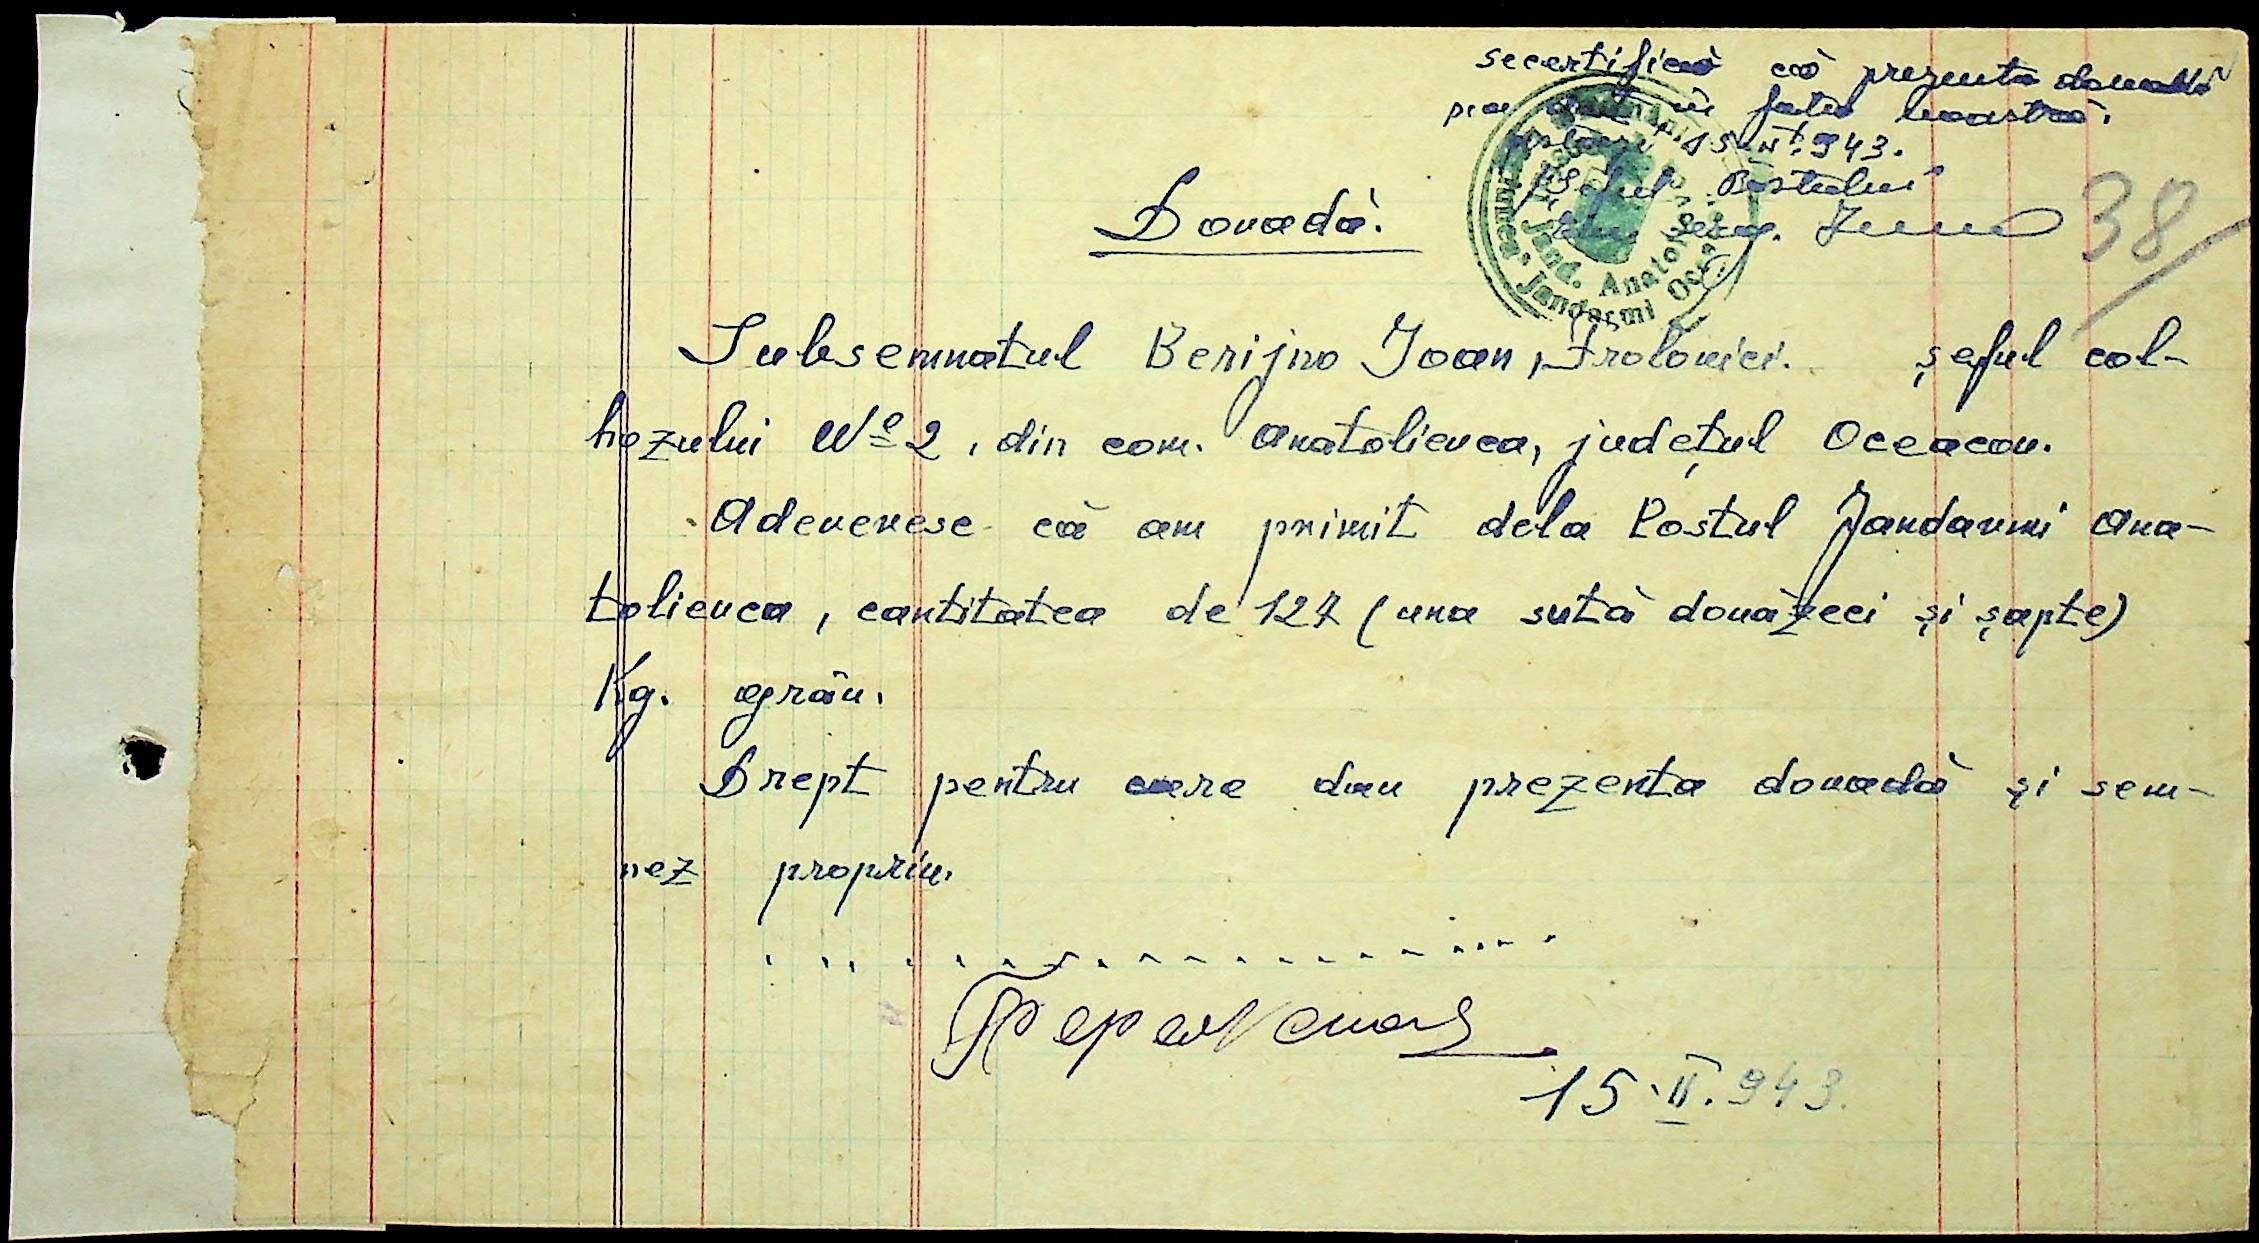 se certifică că prezenta dovadă
în fața noastră.
15.II.943.
Șeful Postului
38
Dovadă.
Subsemnatul Berijno Ioan, Frolovici. șeful col-
hozului No 2, din com. Anatolievca, județul Oceacov.
Adeveresc că am primit dela Postul Jandarmi Ana-
tolievca, cantitatea de 127 (una sută douăzeci și șapte)
Kg. grâu.
Drept pentru care dau prezenta dovadă și sem-
nez propriu.
15.II.943.
Jand. Anatol
Jandarmi Ocea